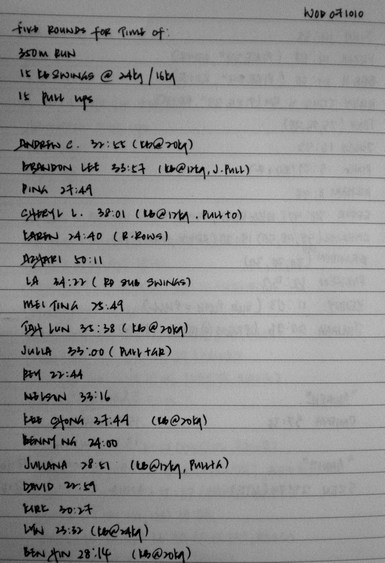 WOD 071010
FIVE ROUNDS FOR TIME OF:
350M RUN
15 KB SWINGS @ 24kg/16kg
15 PULL UPS
ANDREW C. 32:55 (KB@20kg)
BRANDON LEE 33:57 (KB@12kg, J.PULL)
PING 27:49
CHERYL L. 38:01 (KB@12kg, PULL+O)
KAREN 24:40 (R.ROWS)
AZHARI 50:11
LA 34:22 (RD SUB SWINGS)
MEI TING 25:49
LUN 35:38 (KB@20kg)
JULIA 33:00 (PULL+GR)
22:44
NELSON 33:16
KEE SHONG 27:44 (KB@20kg)
BENNY NG 24:00
JULIANA 28:51 (KB@12kg, PULL+G)
DAVID 22:59
KIRK 30:27
LYN 23:32 (KB@24kg)
28:14 (KB@20kg)